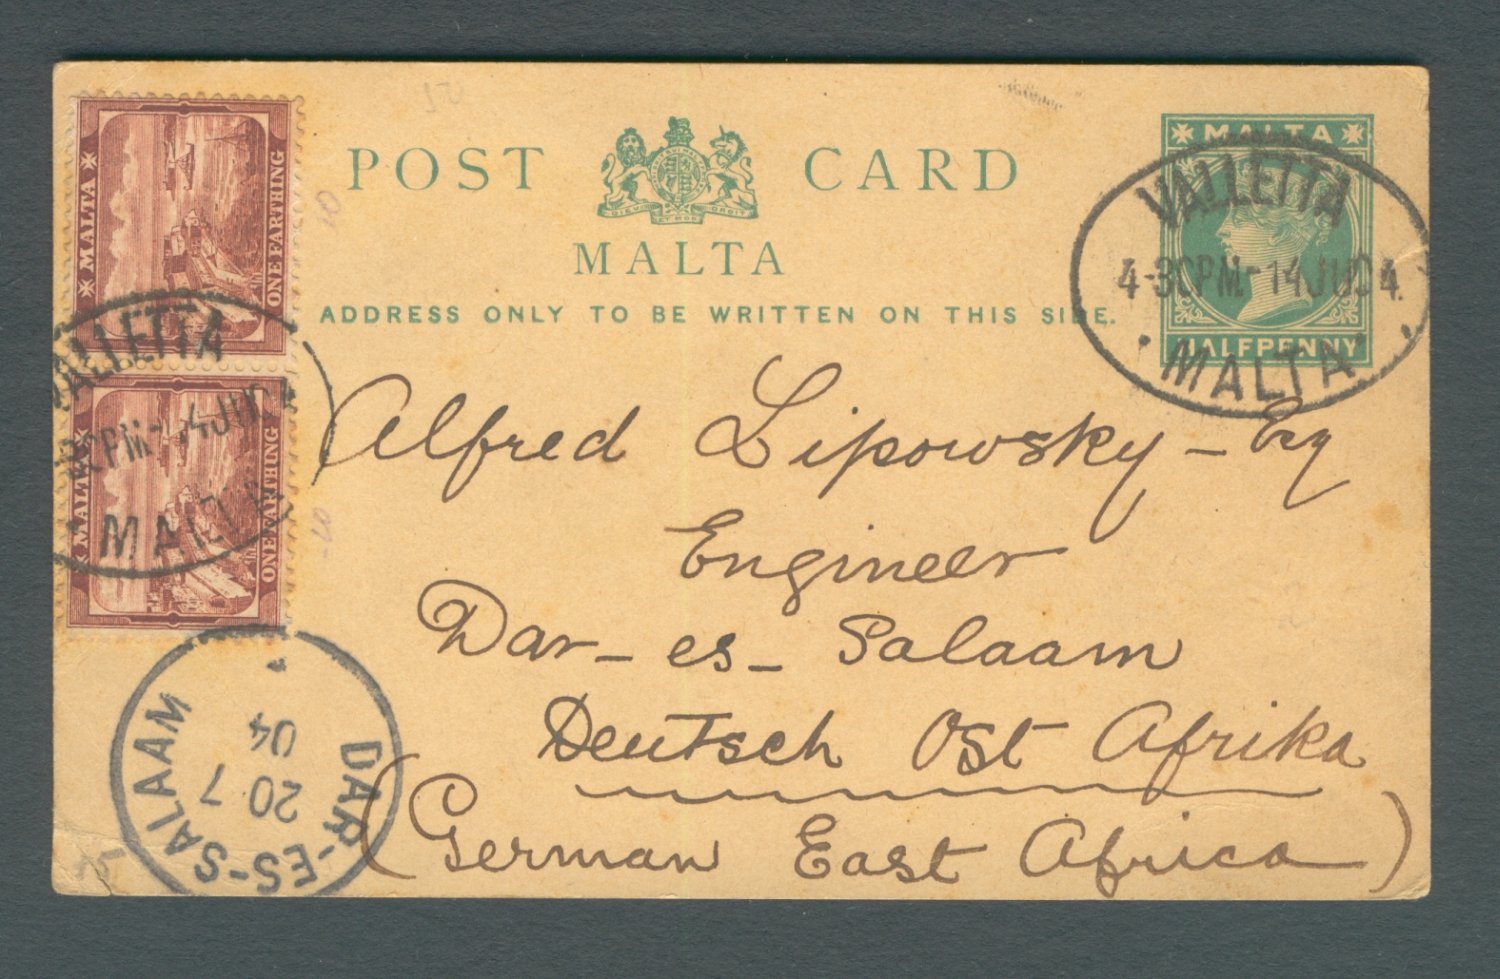 POST CARD
MALTA
ADDRESS ONLY TO BE WRITTEN ON THIS SIDE.
MALTA
HALFPENNY
VALLETTA
4-30PM-14JU04
MALTA
MALTA
ONE FARTHING
MALTA
ONE FARTHING
VALLETTA
MALTA
Alfred Lipowsky - Esq
Engineer
Dar-es-Salaam
Deutsch Ost Afrika
(German East Africa)
DAR-ES-SALAAM
20 7
04